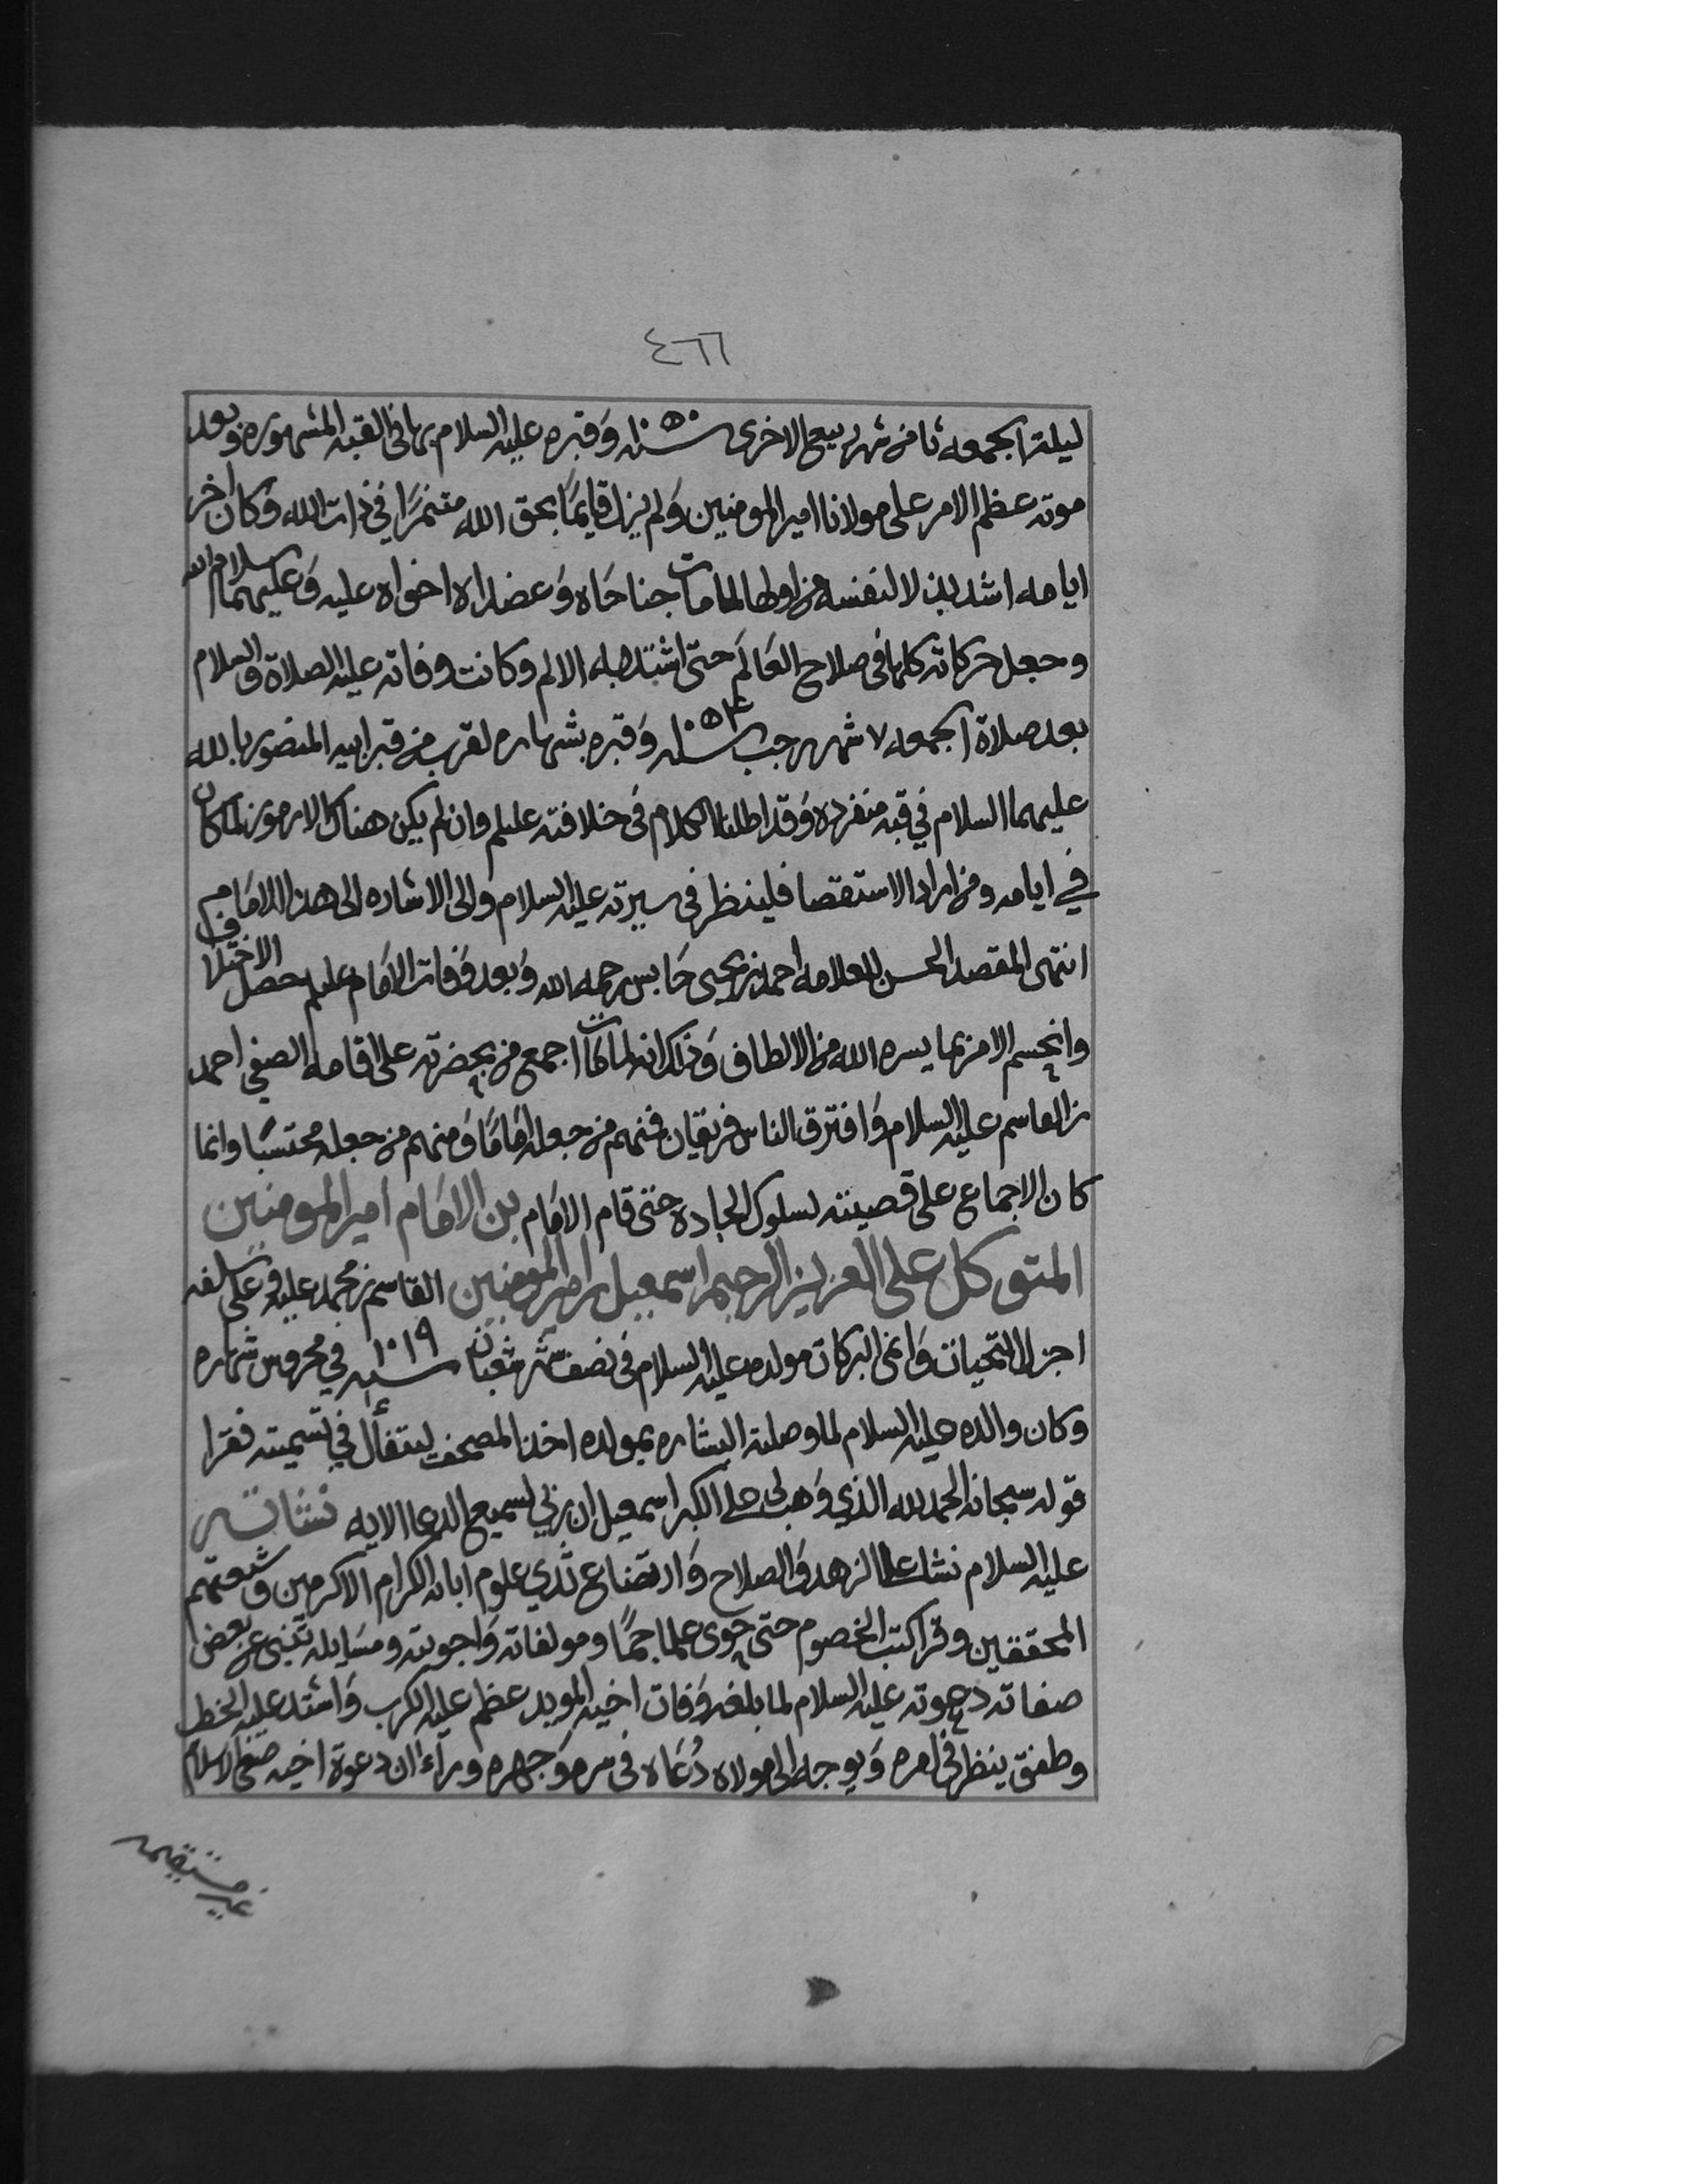 ٤٦٦
ليلة الجمعه ثامن شهر ربيع الاخرى سنه ١٠٥٠ وقبره عليه السلام بها في القبه المشهوره وبعد
موته عظم الامر على مولانا امير المومنين ولم يزل قايمًا بحق الله متنمرًا في ذات الله وكان اخر
ايامه اشد بذلا لنفسه من اولها لما مات جناحاه وعضداه اخواه عليه وعليهما سلام الله
وجعل حركاته كلها في صلاح العالم حتى اشتد به الالم وكانت وفاته عليه الصلاة والسلام
بعد صلاة الجمعه ٧ شهر رجب سنه ١٠٥٤ وقبره بشهاره بقرب من قبر ابيه المنصور بالله
عليهما السلام في قبه منفرده وقد اطلنا الكلام في خلافته عليلم وان لم يكن هناك الا رموز لما كان
في ايامه ومن اراد الاستقصا فلينظر في سيرته عليه السلام والى الاشاره الى هذا الامام
انتهى المقصد الحسن للعلامه احمد بن يحيى حابس رحمه الله وبعد وفات الامام عليلم حصل الاختلاف
وانحسم الامر بما يسره الله من الالطاف وذلك انه لما مات اجمع من بحضرته على اقامه الصفي احمد
بن القاسم عليه السلام وافترق الناس فريقان فمنهم من جعله امامًا ومنهم من جعله محتسبًا وانما
كان الاجماع على قصيته لسلوك الجادة حتى قام الامام بن الامام امير المومنين
المتوكل على العزيز الرحيم اسمعيل بن امير المومنين القاسم بن محمد عليه وعلى سلفه
اجزل التحيات وانمى البركات مولده عليه السلام في نصف شهر شعبان سنه ١٠١٩ في محروس شهاره
وكان والده عليه السلام لما وصلته البشاره بمولده اخذ المصحف ليتفأل في تسميته فقرا
قوله سبحانه الحمد لله الذي وهب لي على الكبر اسمعيل ان ربي لسميع الدعا الايه نشاته
عليه السلام نشا على الزهد والصلاح وارتضاع ثدي علوم ابائه الكرام الاكرمين وشيعتهم
المحققين وقرا كتب الخصوم حتى حوى علما جمًا ومولفاته واجوبته ومسايله تنبي عن بعض
صفاته دعوته عليه السلام لما بلغه وفات اخيه المويد عظم عليه الكرب واشتد عليه الخطب
وطفق ينظر في امره ويوجه الى مولاه دُعاه في سره وجهره وراء ان دعوة اخيه صفي الاسلام
غير مستقيمه